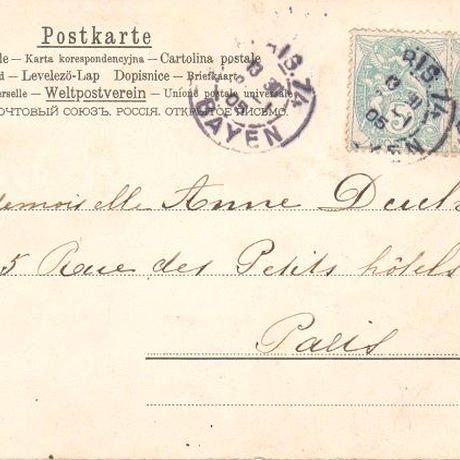 Postkarte
le – Karta korespondencyjna – Cartolina postale
d – Levelező-Lap Dopisnice – Briefkaart
erselle – Weltpostverein – Unione postale universale
ПОЧТОВЫЙ СОЮЗЪ. РОССІЯ. ОТКРЫТОЕ ПИСЬМО.
RIS. 74
13
05
BAYEN
RIS. 74
13
05
AYEN
5
demoiselle Anne
5 Rue des Petits hôtels
Paris